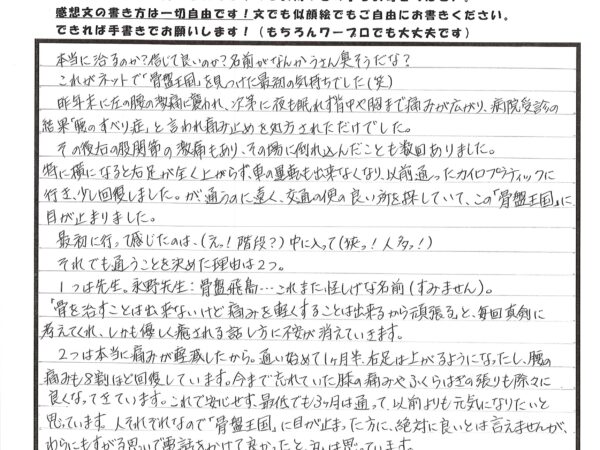 感想文の書き方は一切自由です！文でも似顔絵でもご自由にお書きください。
できれば手書きでお願いします！（もちろんワープロでも大丈夫です）
本当に治るのか？信じて良いのか？名前がなんかうさん臭そうだな？
これがネットで「骨盤王国」を見つけた最初の気持ちでした（笑）
昨年末に左の腰の激痛に襲われ、次第に夜も眠れず背中や胸まで痛みが広がり、病院受診の
結果「腰のすべり症」と言われ痛み止めを処方されただけでした。
その後右の股関節の激痛もあり、その場に倒れ込んだことも数回ありました。
特に横になると右足が全く上がらず、車の運転も出来なくなり、以前通ったカイロプラティックに
行き、少し回復しました。が通うのに遠く、交通の便の良い所を探していて、この「骨盤王国」に
目が止まりました。
最初に行って感じたのは、（えっ！階段？）中に入って（狭っ！人多っ！）
それでも通うことを決めた理由は2つ。
1つは先生。永野先生：骨盤飛高…これまた怪しげな名前（すみません）。
「骨を治すことは出来ないけど痛みを軽くすることは出来るから頑張る」と、毎回真剣に
考えてくれ、しかも優しく癒される話し方に不安が消えていきます。
2つは本当に痛みが軽減したから。通い始めて1ヶ月半、右足は上がるようになったし、腰の
痛みも8割ほど回復しています。今まで忘れていた膝の痛みやふくらはぎの張りも除々に
良くなってきています。これで安心せず、最低でも3ヶ月は通って、以前よりも元気になりたいと
思っています。人それぞれなので「骨盤王国」に目が止まった方に、絶対に良いとは言えませんが、
わらにもすがる思いで電話をかけて良かったと、私は思っています。